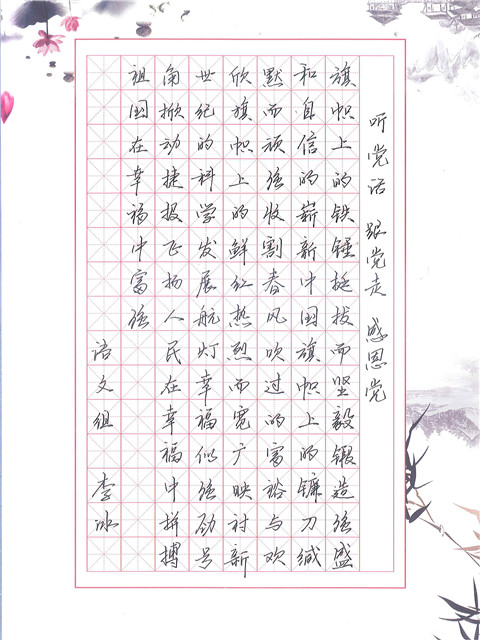 听党话 跟党走 感恩党
旗帜上的铁锤挺拔而坚毅锻造强盛
和自信的崭新中国旗帜上的镰刀缄
默而顽强收割春风吹过的富裕与欢
欣旗帜上的鲜红热烈而宽广映衬新
世纪的科学发展航灯幸福似强劲号
角掀动捷报飞扬人民在幸福中拼搏
祖国在幸福中富强
语文组 李冰